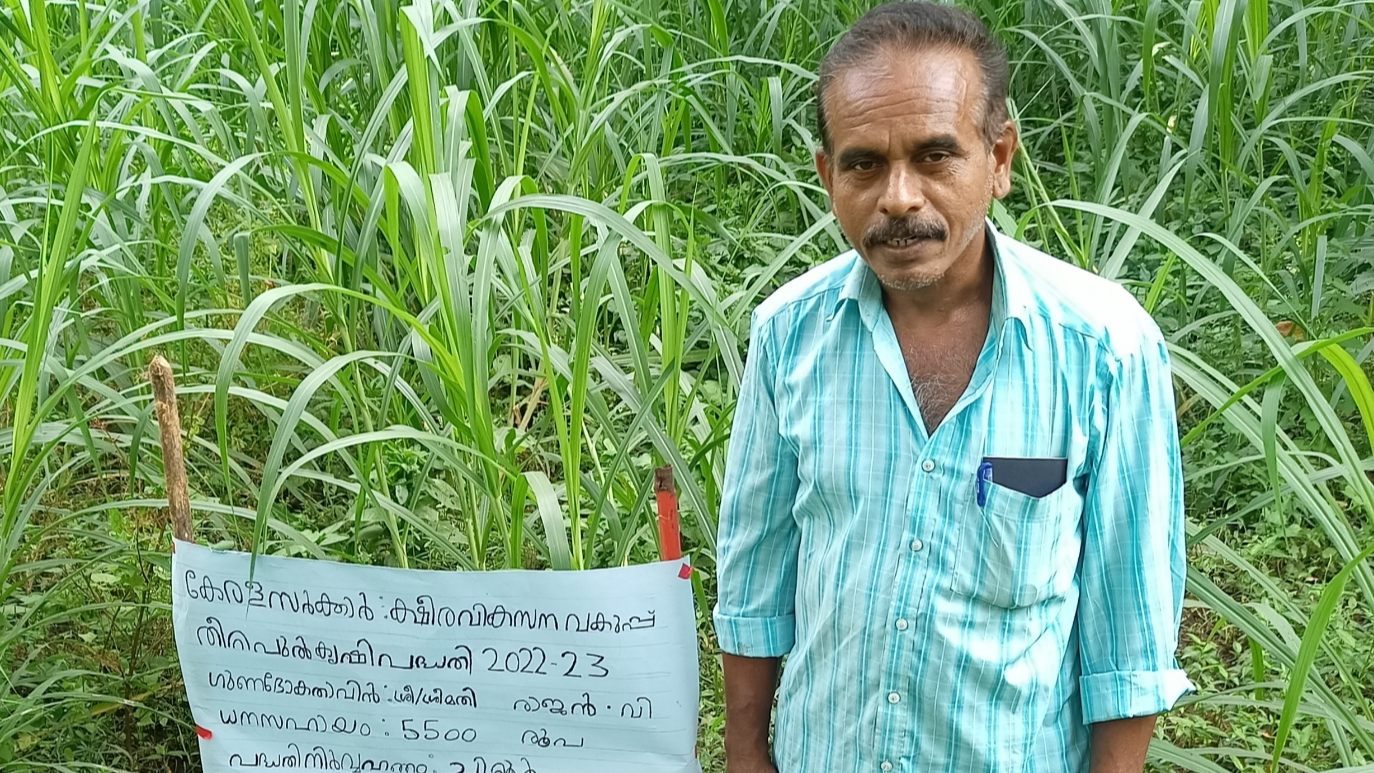 കേരളസർക്കാർ : ക്ഷീരവികസന വകുപ്പ്
തീറ്റപുൽകൃഷി പദ്ധതി 2022-23
ഗുണഭോക്താവിൻ : ശ്രീ/ശ്രീമതി രാജൻ . വി
ധനസഹായം : 5500 രൂപ
പദ്ധതിനിർവ്വഹണം :